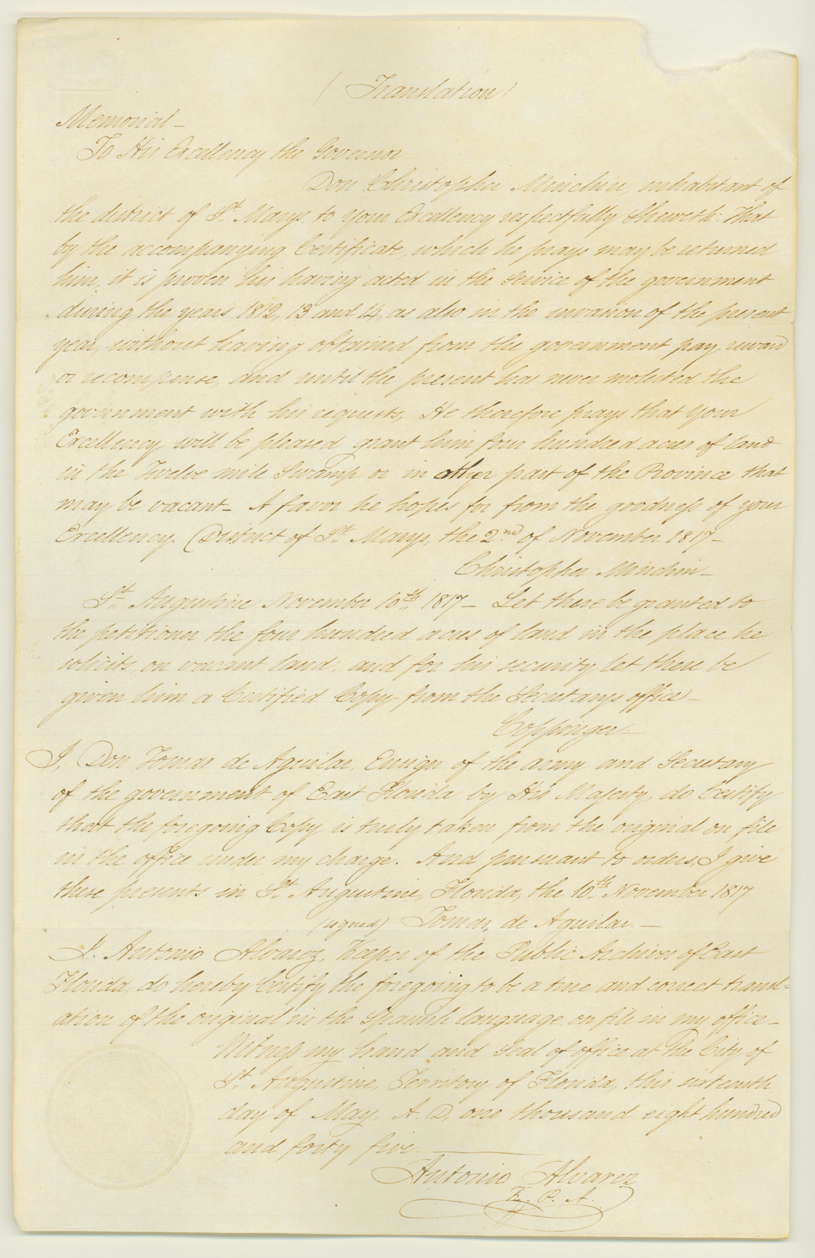 (Translation)
Memorial—
To His Excellency the Governor
Don Christopher Minchin, inhabitant of
the district of St. Marys, to your Excellency respectfully sheweth: That
by the accompanying Certificate, which he prays may be returned
him, it is proven his having acted in the service of the government
during the years 1812, 13 and 14, as also in the invasion of the present
year, without having obtained from the government pay, reward
or recompense, and until the present has never molested the
government with his requests, He therefore prays that your
Excellency will be pleased grant him four hundred acres of land
in the Twelve mile Swamp or in other part of the Province that
may be vacant— A favor he hopes for from the goodness of your
Excellency. District of St. Marys, the 2nd of November 1817—
Christopher Minchin—
St. Augustine November 10th 1817— Let there be granted to
the petitioner the four hundred acres of land in the place he
solicits, on vacant land; and for his security let there be
given him a Certified Copy from the Secretarys office—
Coppinger—
I, Don Tomas de Aguilar, Ensign of the army and Secretary
of the government of East Florida by His Majesty, do Certify
that the foregoing Copy is truly taken from the original on file
in the office under my charge. And pursuant to orders I give
these presents in St. Augustine, Florida, the 10th November 1817
(signed) Tomas de Aguilar—
I, Antonio Alvarez, Keeper of the Public Archives of East
Florida, do hereby Certify the foregoing to be a true and correct transl-
ation of the original in the Spanish language, on file in my office—
Witness my hand and Seal of office at the City of
St. Augustine, Territory of Florida, this sixteenth
day of May, A. D. one thousand eight hundred
and forty five.
Antonio Alvarez
K. P. A.